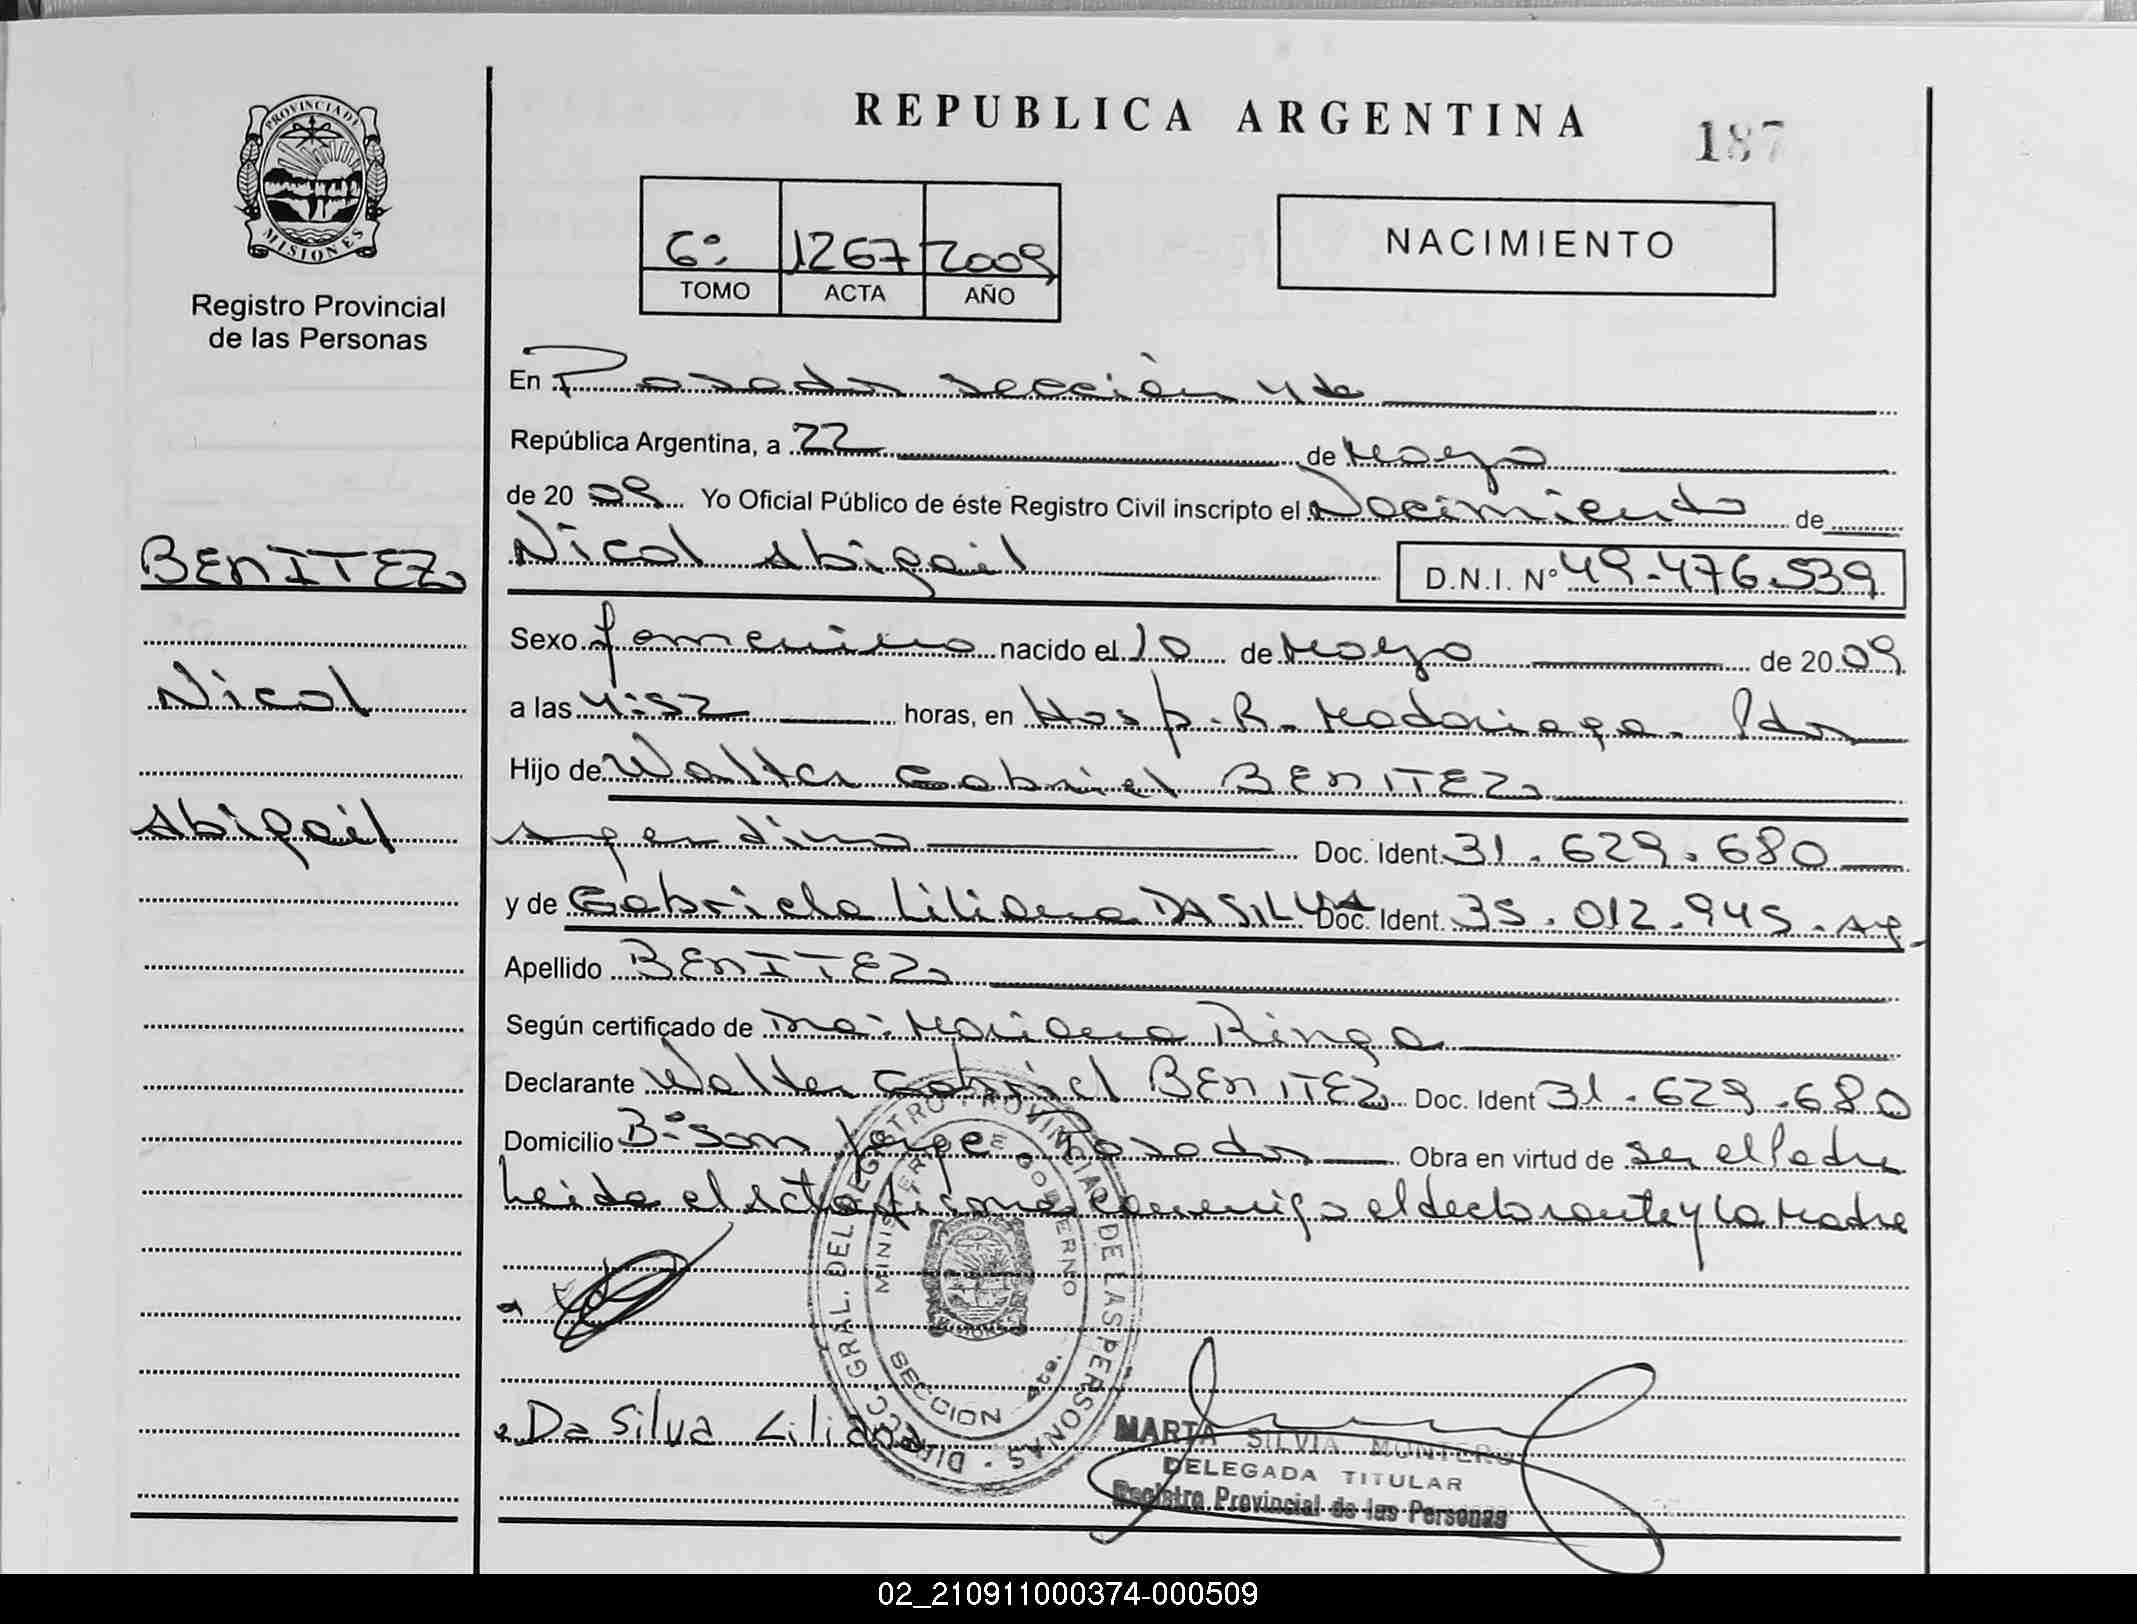 REPUBLICA ARGENTINA
187
PROVINCIA DE
MISIONES
Registro Provincial
de las Personas
6º 1267 2009
TOMO ACTA AÑO
NACIMIENTO
En Posadas sección 4ta
República Argentina, a 22 de Mayo
de 2009 Yo Oficial Público de éste Registro Civil inscripto el Nacimiento de
BENITEZ
Nicol
Abigail
Nicol Abigail D.N.I. Nº 49.476.539
Sexo femenino nacido el 10 de Mayo de 2009
a las 4:52 horas, en Hosp. R. Madariaga. Pdas
Hijo de Walter Gabriel BENITEZ
Argentino Doc. Ident. 31.629.680
y de Gabriela Liliana DA SILVA Doc. Ident. 35.012.945. Arg.
Apellido BENITEZ
Según certificado de Dra. Mariana Ringa
Declarante Walter Gabriel BENITEZ Doc. Ident 31.629.680
Domicilio Bº San Jorge. Posadas Obra en virtud de ser el Padre
Leida el Acta firma conmigo el declarante y la Madre
DIRECC. GRAL. DEL REGISTRO PROVINCIAL DE LAS PERSONAS
MINISTERIO DE GOBIERNO
SECCION 4ta.
Da Silva Liliana
MARTA SILVIA MONTERO
DELEGADA TITULAR
Registro Provincial de las Personas
02_210911000374-000509